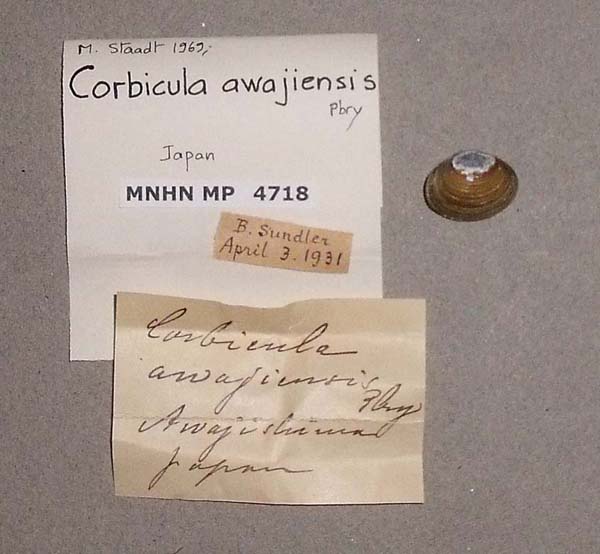 M. Staadt 1969,-
Corbicula awajiensis
Pbry
Japan
MNHN MP 4718
B. Sundler
April 3. 1931
Corbicula
awajiensis
Pbry
Awajishima
Japan